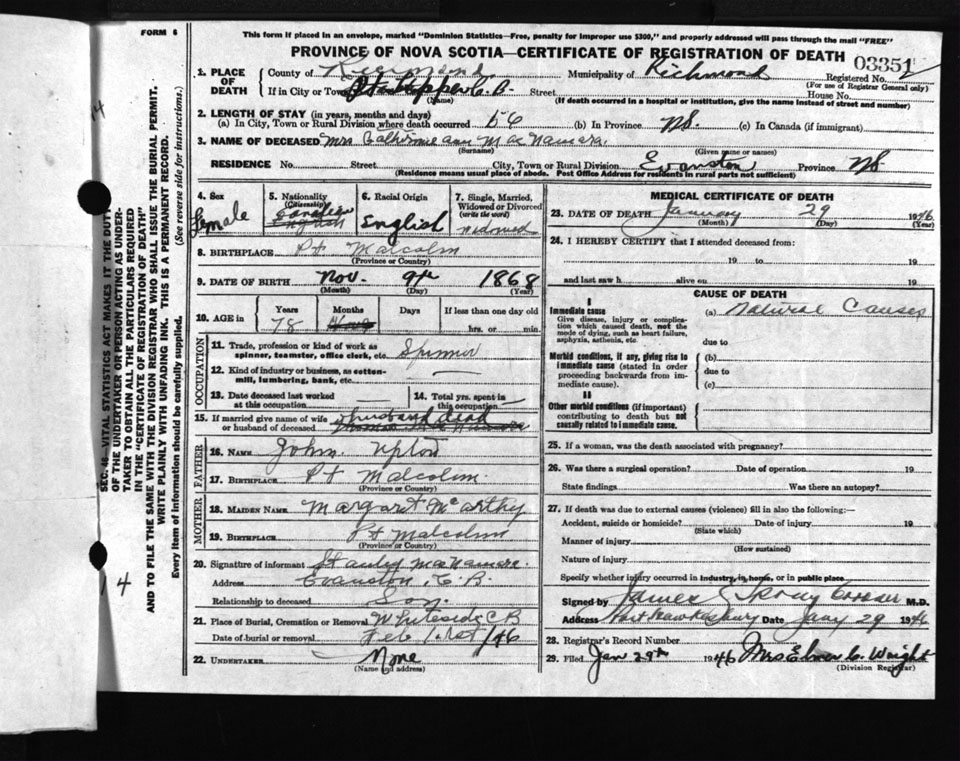 FORM 6
This form if placed in an envelope, marked "Dominion Statistics—Free, penalty for improper use $300," and properly addressed will pass through the mail "FREE"
PROVINCE OF NOVA SCOTIA—CERTIFICATE OF REGISTRATION OF DEATH
03351
1. PLACE OF DEATH
County of Richmond Municipality of Richmond Registered No.
(For use of Registrar General only)
If in City or Town C. B. Street House No.
(Name) (If death occurred in a hospital or institution, give the name instead of street and number)
2. LENGTH OF STAY (in years, months and days)
(a) In City, Town or Rural Division where death occurred 56 (b) In Province NS. (c) In Canada (if immigrant)
3. NAME OF DECEASED Mrs Catherine ann MacNamara
(Surname) (Given name or names)
RESIDENCE No. Street City, Town or Rural Division Evanston Province NS
(Residence means usual place of abode. Post Office Address for residents in rural parts not sufficient)
4. Sex Female
5. Nationality (Citizenship) Canadian English
6. Racial Origin English
7. Single, Married, Widowed or Divorced (write the word) Widowed
8. BIRTHPLACE Pt Malcolm
(Province or Country)
9. DATE OF BIRTH Nov. 9th 1868
(Month) (Day) (Year)
10. AGE in Years 78 Months Days If less than one day old
hrs. or min.
OCCUPATION
11. Trade, profession or kind of work as spinner, teamster, office clerk, etc. Spinner
12. Kind of industry or business, as cotton-mill, lumbering, bank, etc. —
13. Date deceased last worked at this occupation —
14. Total yrs. spent in this occupation —
15. If married give name of wife or husband of deceased husband dead
FATHER
16. NAME John Upton
17. BIRTHPLACE Pt Malcolm
(Province or Country)
MOTHER
18. MAIDEN NAME Margaret McCarthy
19. BIRTHPLACE Pt Malcolm
(Province or Country)
20. Signature of informant Stanley MacNamara
Address Evanston, C. B.
Relationship to deceased Son.
21. Place of Burial, Cremation or Removal Whiteside C B
Date of burial or removal Feb 1st /46
22. UNDERTAKER None
(Name and address)
MEDICAL CERTIFICATE OF DEATH
23. DATE OF DEATH January 29 1946
(Month) (Day) (Year)
24. I HEREBY CERTIFY that I attended deceased from:
19 to 19
and last saw h alive on 19
CAUSE OF DEATH
I
Immediate cause
Give disease, injury or complication which caused death, not the mode of dying, such as heart failure, asphyxia, asthenia, etc.
(a) Natural Causes
due to
Morbid conditions, if any, giving rise to immediate cause (stated in order proceeding backwards from immediate cause).
(b)
due to
(c)
II
Other morbid conditions (if important) contributing to death but not causally related to immediate cause.
25. If a woman, was the death associated with pregnancy?
26. Was there a surgical operation? Date of operation 19
State findings Was there an autopsy?
27. If death was due to external causes (violence) fill in also the following:—
Accident, suicide or homicide? Date of injury 19
(State which)
Manner of injury
(How sustained)
Nature of injury
Specify whether injury occurred in industry, in home, or in public place
Signed by James Coroner M.D.
Address Port Hawkesbury Date Jany 29 1946
28. Registrar's Record Number
29. Filed Jan 29th 1946 Mrs Elmer C. Wright
(Division Registrar)
SEC. 46 VITAL STATISTICS ACT MAKES IT THE DUTY
OF THE UNDERTAKER OR PERSON ACTING AS UNDER-
TAKER TO OBTAIN ALL THE PARTICULARS REQUIRED
IN THE "CERTIFICATE OF REGISTRATION OF DEATH"
AND TO FILE THE SAME WITH THE DIVISION REGISTRAR WHO SHALL ISSUE THE BURIAL PERMIT.
WRITE PLAINLY WITH UNFADING INK. THIS IS A PERMANENT RECORD.
Every item of information should be carefully supplied. (See reverse side for instructions.)
14